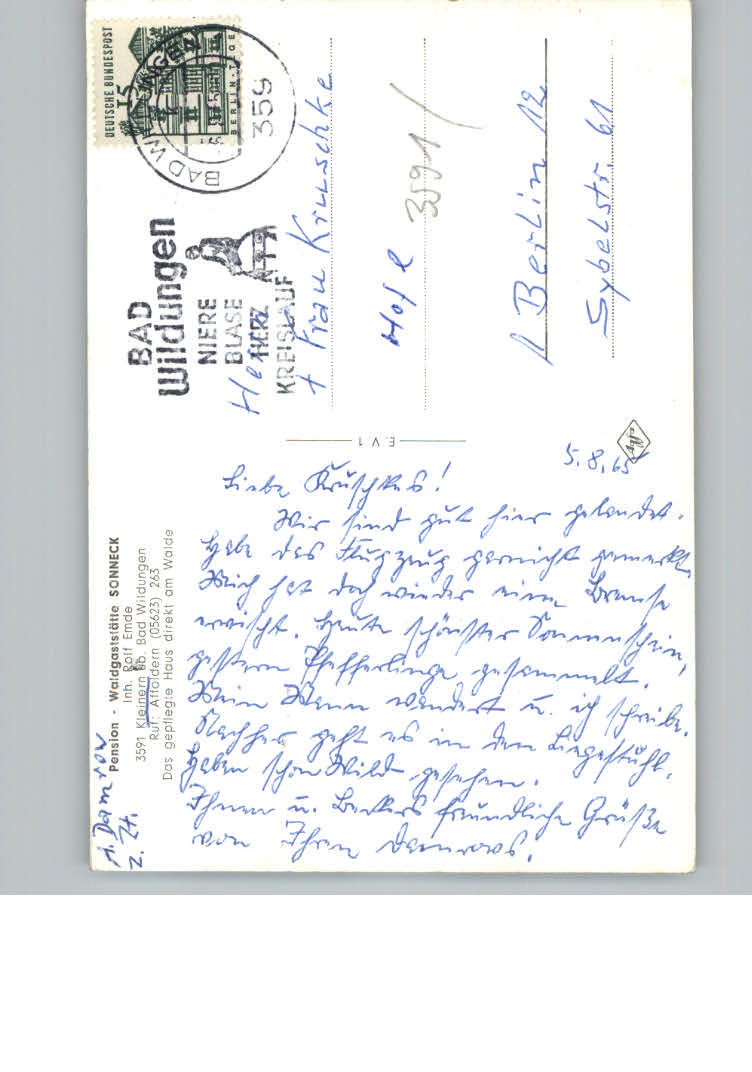 A. Damrow
z. Zt.
Pension - Waldgaststätte SONNECK
Inh. Rolf Emde
3591 Kleinern üb. Bad Wildungen
Ruf: Affoldern (05623) 263
Das gepflegte Haus direkt am Walde
5.8.65
Liebe Kruschkes!
Wir sind gut hier gelandet.
Habe das Flugzeug garnicht gemerkt.
Mich hat doch wieder eine Bremse
erwischt. Heute schönster Sonnenschein,
gestern Pfefferlinge gesammelt.
Mein Mann wandert u. ich schreibe.
Nachher geht es in den Liegestuhl.
Haben schon Wild gesehen.
Ihnen u. Beckers freundliche Grüße
von Ihren Damrows.
E. V 1
DEUTSCHE BUNDESPOST
15
BERLIN-TEGEL
BAD WILDUNGEN
359
BAD
Wildungen
NIERE
BLASE
HERZ
KREISLAUF
Herrn
+ Frau Kruschke
3591
1 Berlin 12
Sybelstr. 61